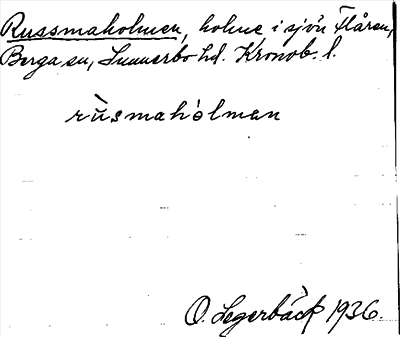 Russmaholmen, holme i sjön Flåren,
Berga sn, Sunnerbo hd. Kronob. l.
rùsmahòlman
O. Legerbäck 1936.